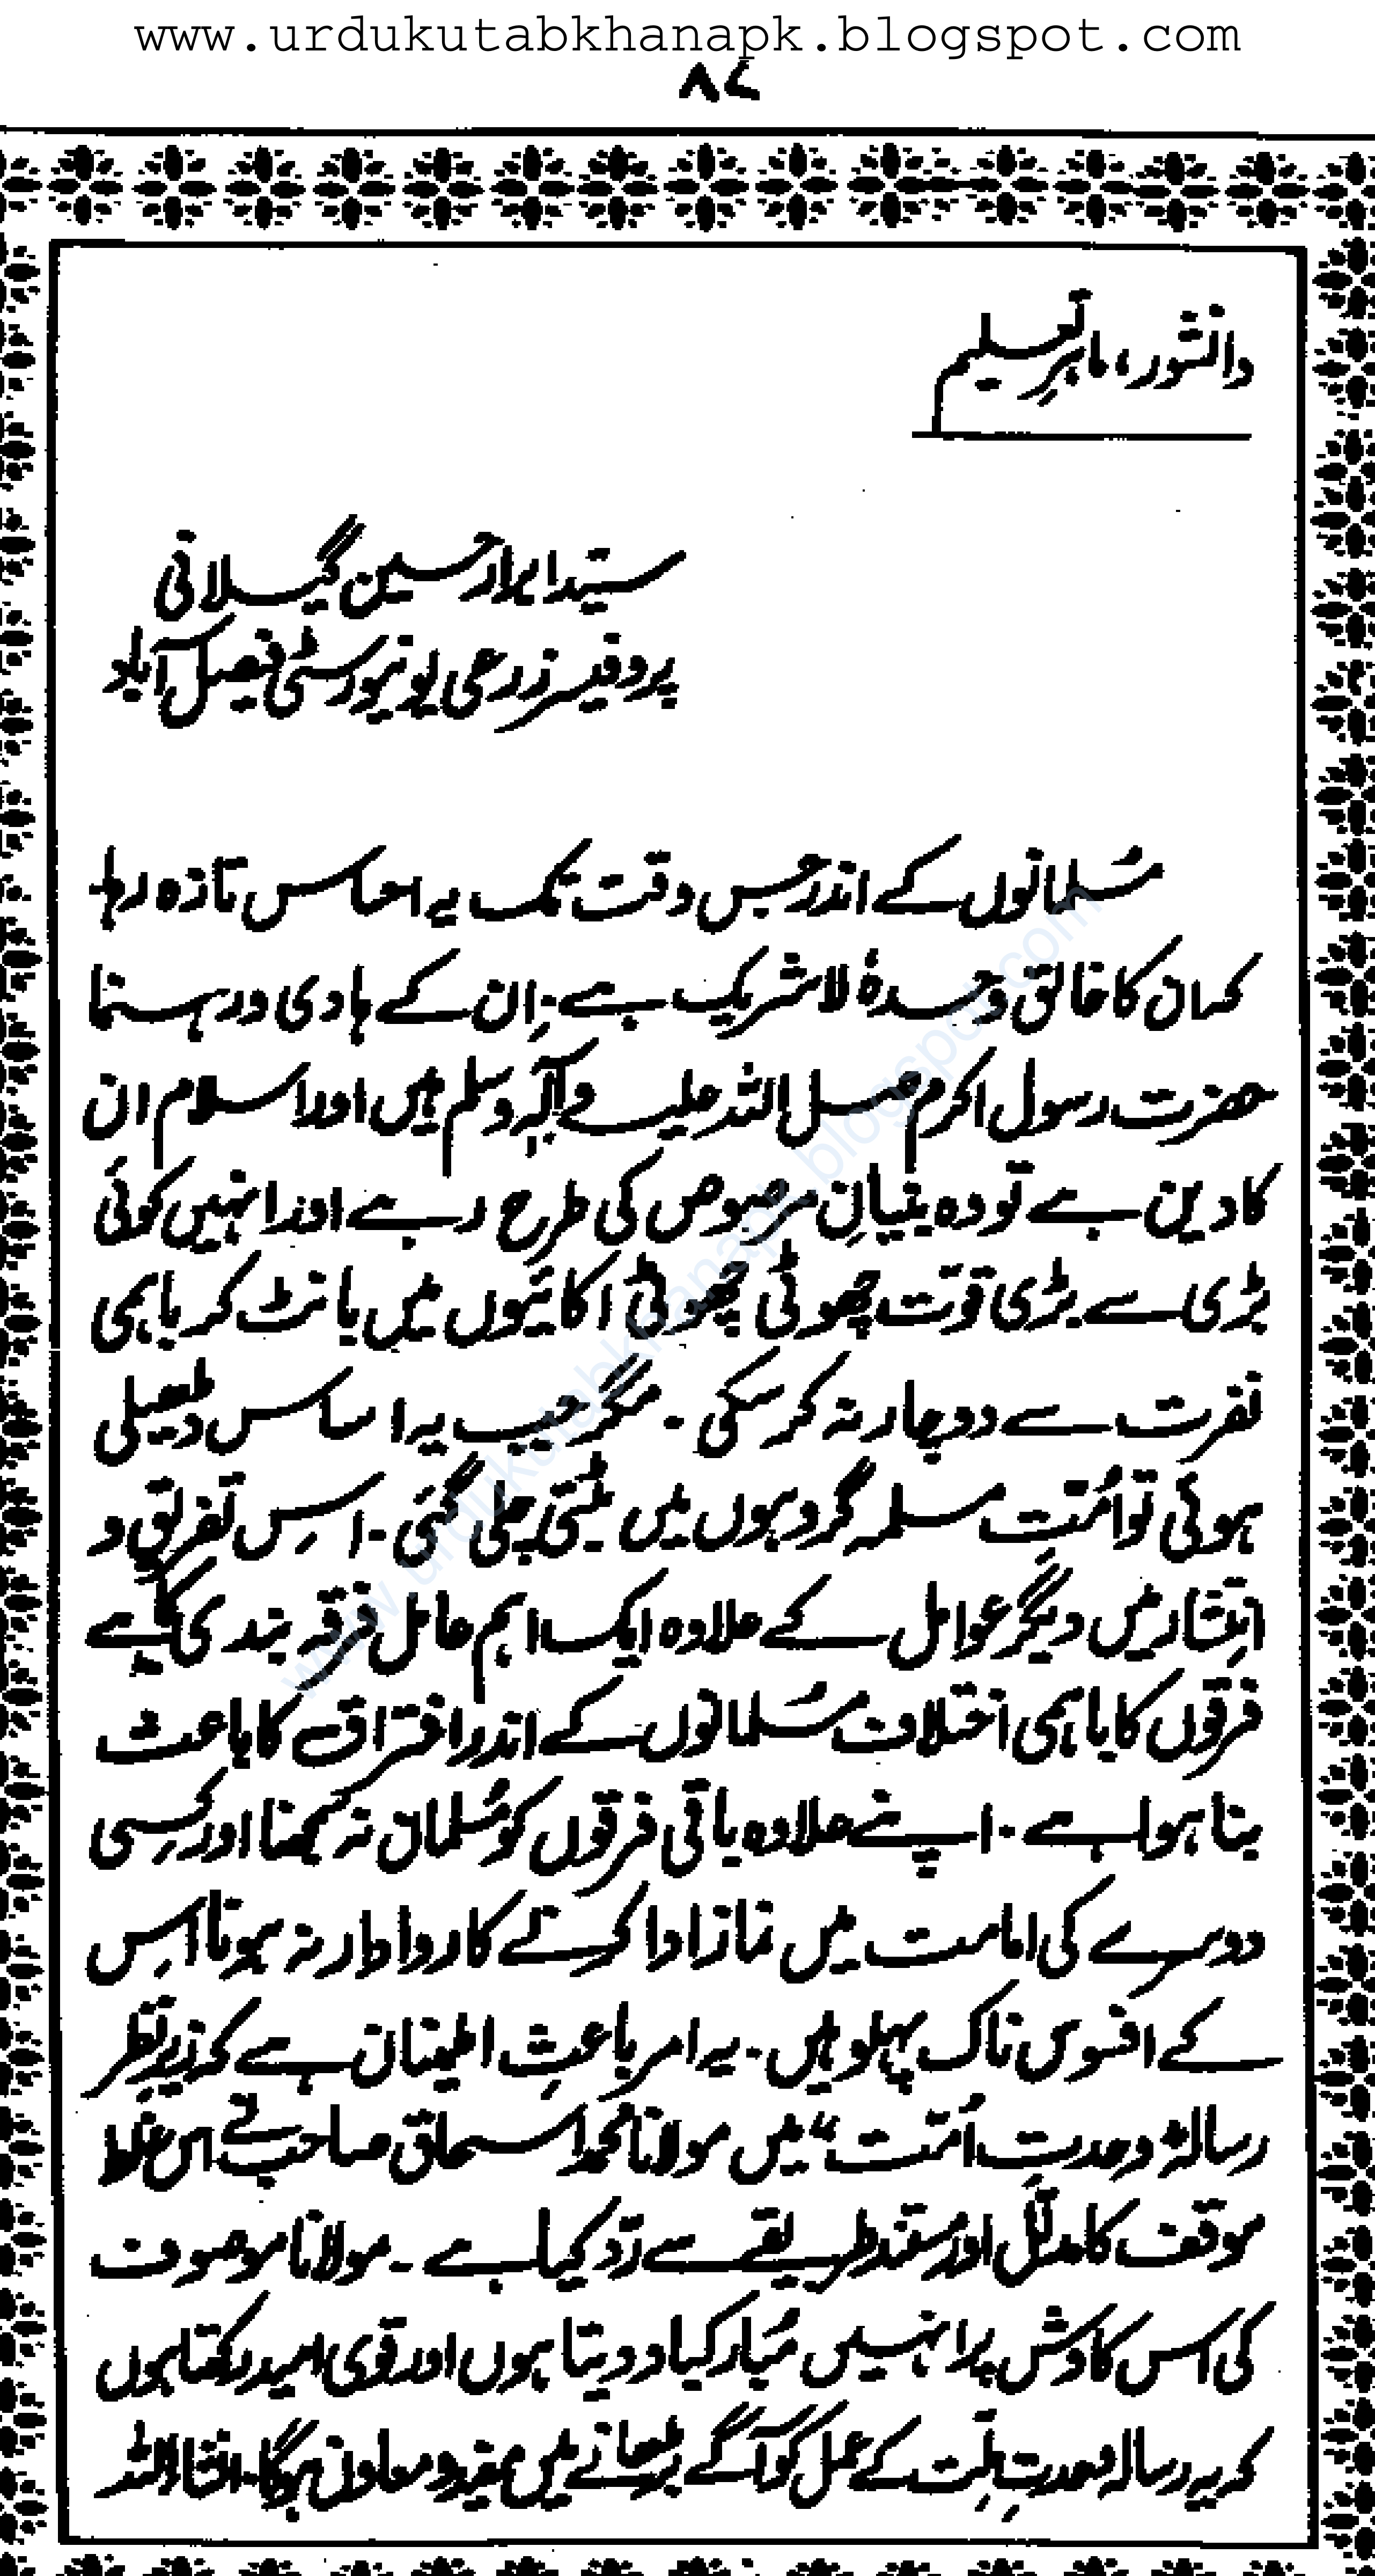 www.urdukutabkhanapk.blogspot.com
۸۷
دانشور، ماہرِ تعلیم
سید ابرار حسین گیلانی
پروفیسر زرعی یونیورسٹی فیصل آباد
مُسلمانوں کے اندر جس وقت تک یہ احساس تازہ رہا
کہ ان کا خالق وحدہٗ لا شریک ہے۔ اِن کے ہادی و رہنما
حضرت رسول اکرم صلی اللہ علیہ وآلہٖ وسلم ہیں اور اسلام ان
کا دین ہے تو وہ بنیانِ مرصوص کی طرح رہے اور انہیں کوئی
بڑی سے بڑی قوّت چھوٹی چھوٹی اکائیوں میں بانٹ کر باہمی
نفرت سے دوچار نہ کر سکی ۔ مگر جب یہ اساس ڈھیلی
ہوئی تو اُمّتِ مسلمہ گروہوں میں بٹتی چلی گئی ۔ اس تفریق و
انتشار میں دیگر عوامل کے علاوہ ایک اہم عامل فرقہ بندی کا ہے
فرقوں کا باہمی اختلاف مُسلمانوں کے اندر افتراق کا باعث
بنا ہوا ہے ۔ اپنے علاوہ باقی فرقوں کو مُسلمان نہ سمجھنا اور کسی
دوسرے کی امامت میں نماز ادا کرنے کا روادار نہ ہونا اس
کے افسوس ناک پہلو ہیں ۔ یہ امر باعثِ اطمینان ہے کہ زیرِ نظر
رسالہ "وحدتِ اُمّت" میں مولانا محمد اسحاق صاحب نے اس غلط
موقف کا مدلّل اور مستند طریقے سے رَد کیا ہے ۔ مولانا موصوف
کی اس کاوش پر انہیں مُبارکباد دیتا ہوں اور قوی امید رکھتا ہوں
کہ یہ رسالہ وحدتِ مِلّت کے عمل کو آگے بڑھانے میں ممد و معاون ہوگا۔ انشاءاللہ
www.urdukutabkhanapk.blogspot.com